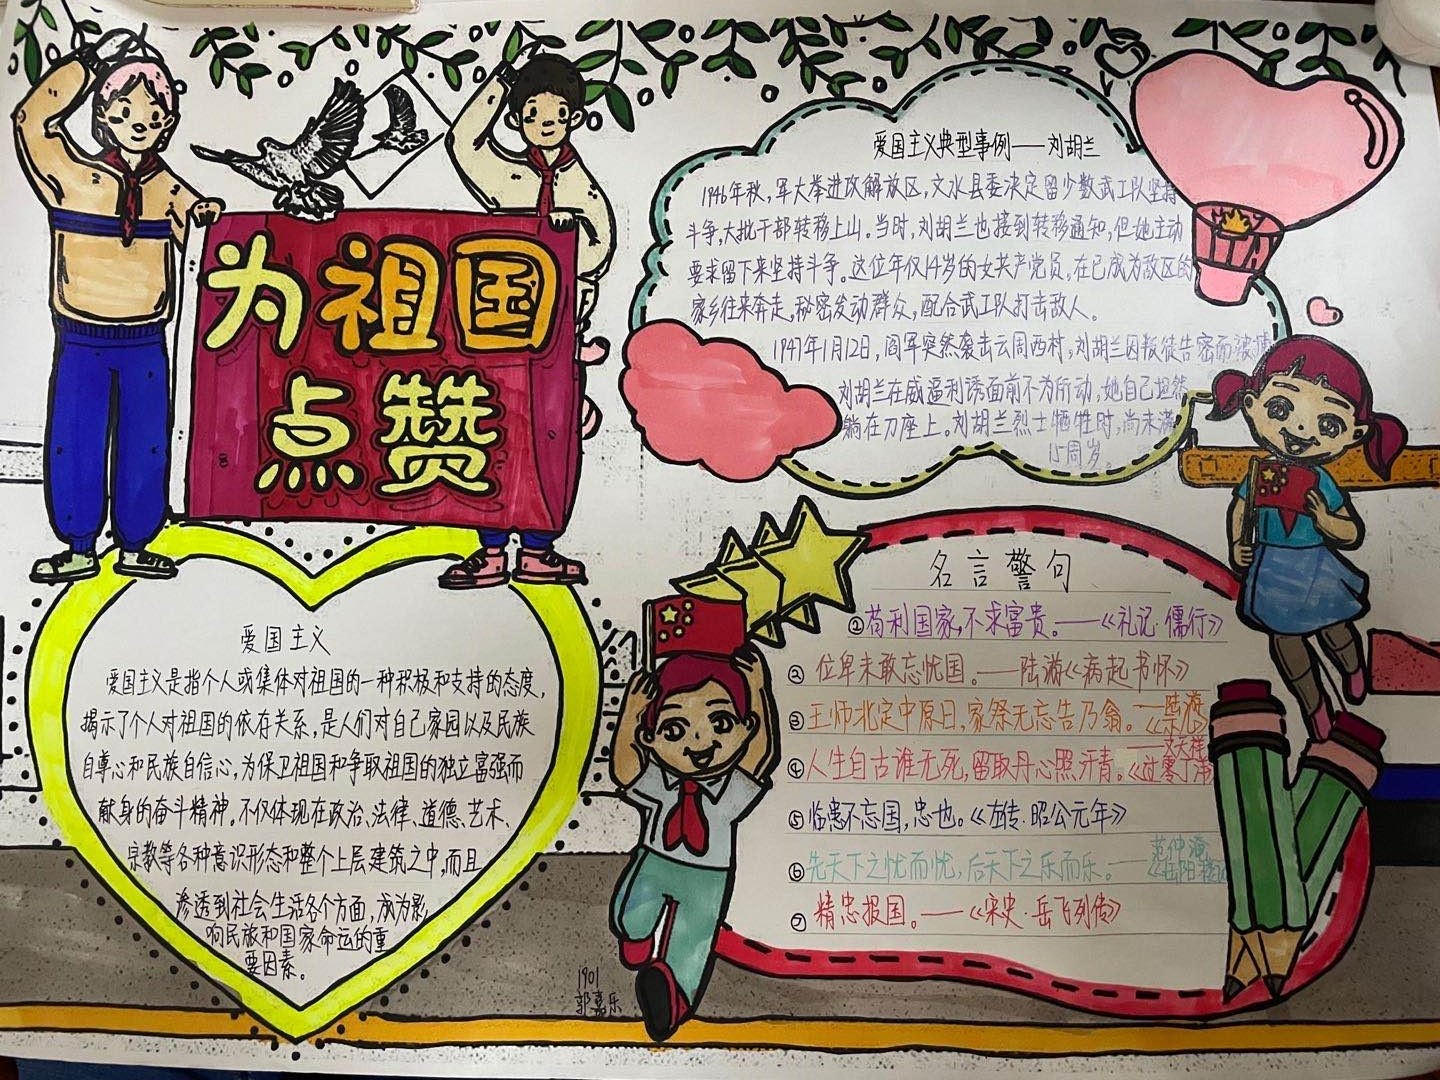 为祖国
点赞
爱国主义典型事例——刘胡兰
1946年秋,军大举进攻解放区,文水县委决定留少数武工队坚持
斗争,大批干部转移上山。当时,刘胡兰也接到转移通知,但她主动
要求留下来坚持斗争。这位年仅14岁的女共产党员,在已成为敌区的
家乡往来奔走,秘密发动群众,配合武工队打击敌人。
1947年1月12日,阎军突然袭击云周西村,刘胡兰因叛徒告密而被捕
刘胡兰在威逼利诱面前不为所动,她自己坦然
躺在刀座上。刘胡兰烈士牺牲时,尚未满
15周岁
爱国主义
爱国主义是指个人或集体对祖国的一种积极和支持的态度,
揭示了个人对祖国的依存关系,是人们对自己家园以及民族
自尊心和民族自信心,为保卫祖国和争取祖国的独立富强而
献身的奋斗精神。不仅体现在政治、法律、道德、艺术、
宗教等各种意识形态和整个上层建筑之中,而且
渗透到社会生活各个方面,成为影
响民族和国家命运的重
要因素。
名言警句
①苟利国家,不求富贵。——《礼记·儒行》
② 位卑未敢忘忧国。——陆游《病起书怀》
③ 王师北定中原日,家祭无忘告乃翁。——陆游
《示儿》
④ 人生自古谁无死,留取丹心照汗青。——文天祥
《过零丁洋》
⑤ 临患不忘国,忠也。《左传·昭公元年》
⑥ 先天下之忧而忧,后天下之乐而乐。——范仲淹
《岳阳楼记
⑦ 精忠报国。——《宋史·岳飞列传》
1901
郭嘉乐